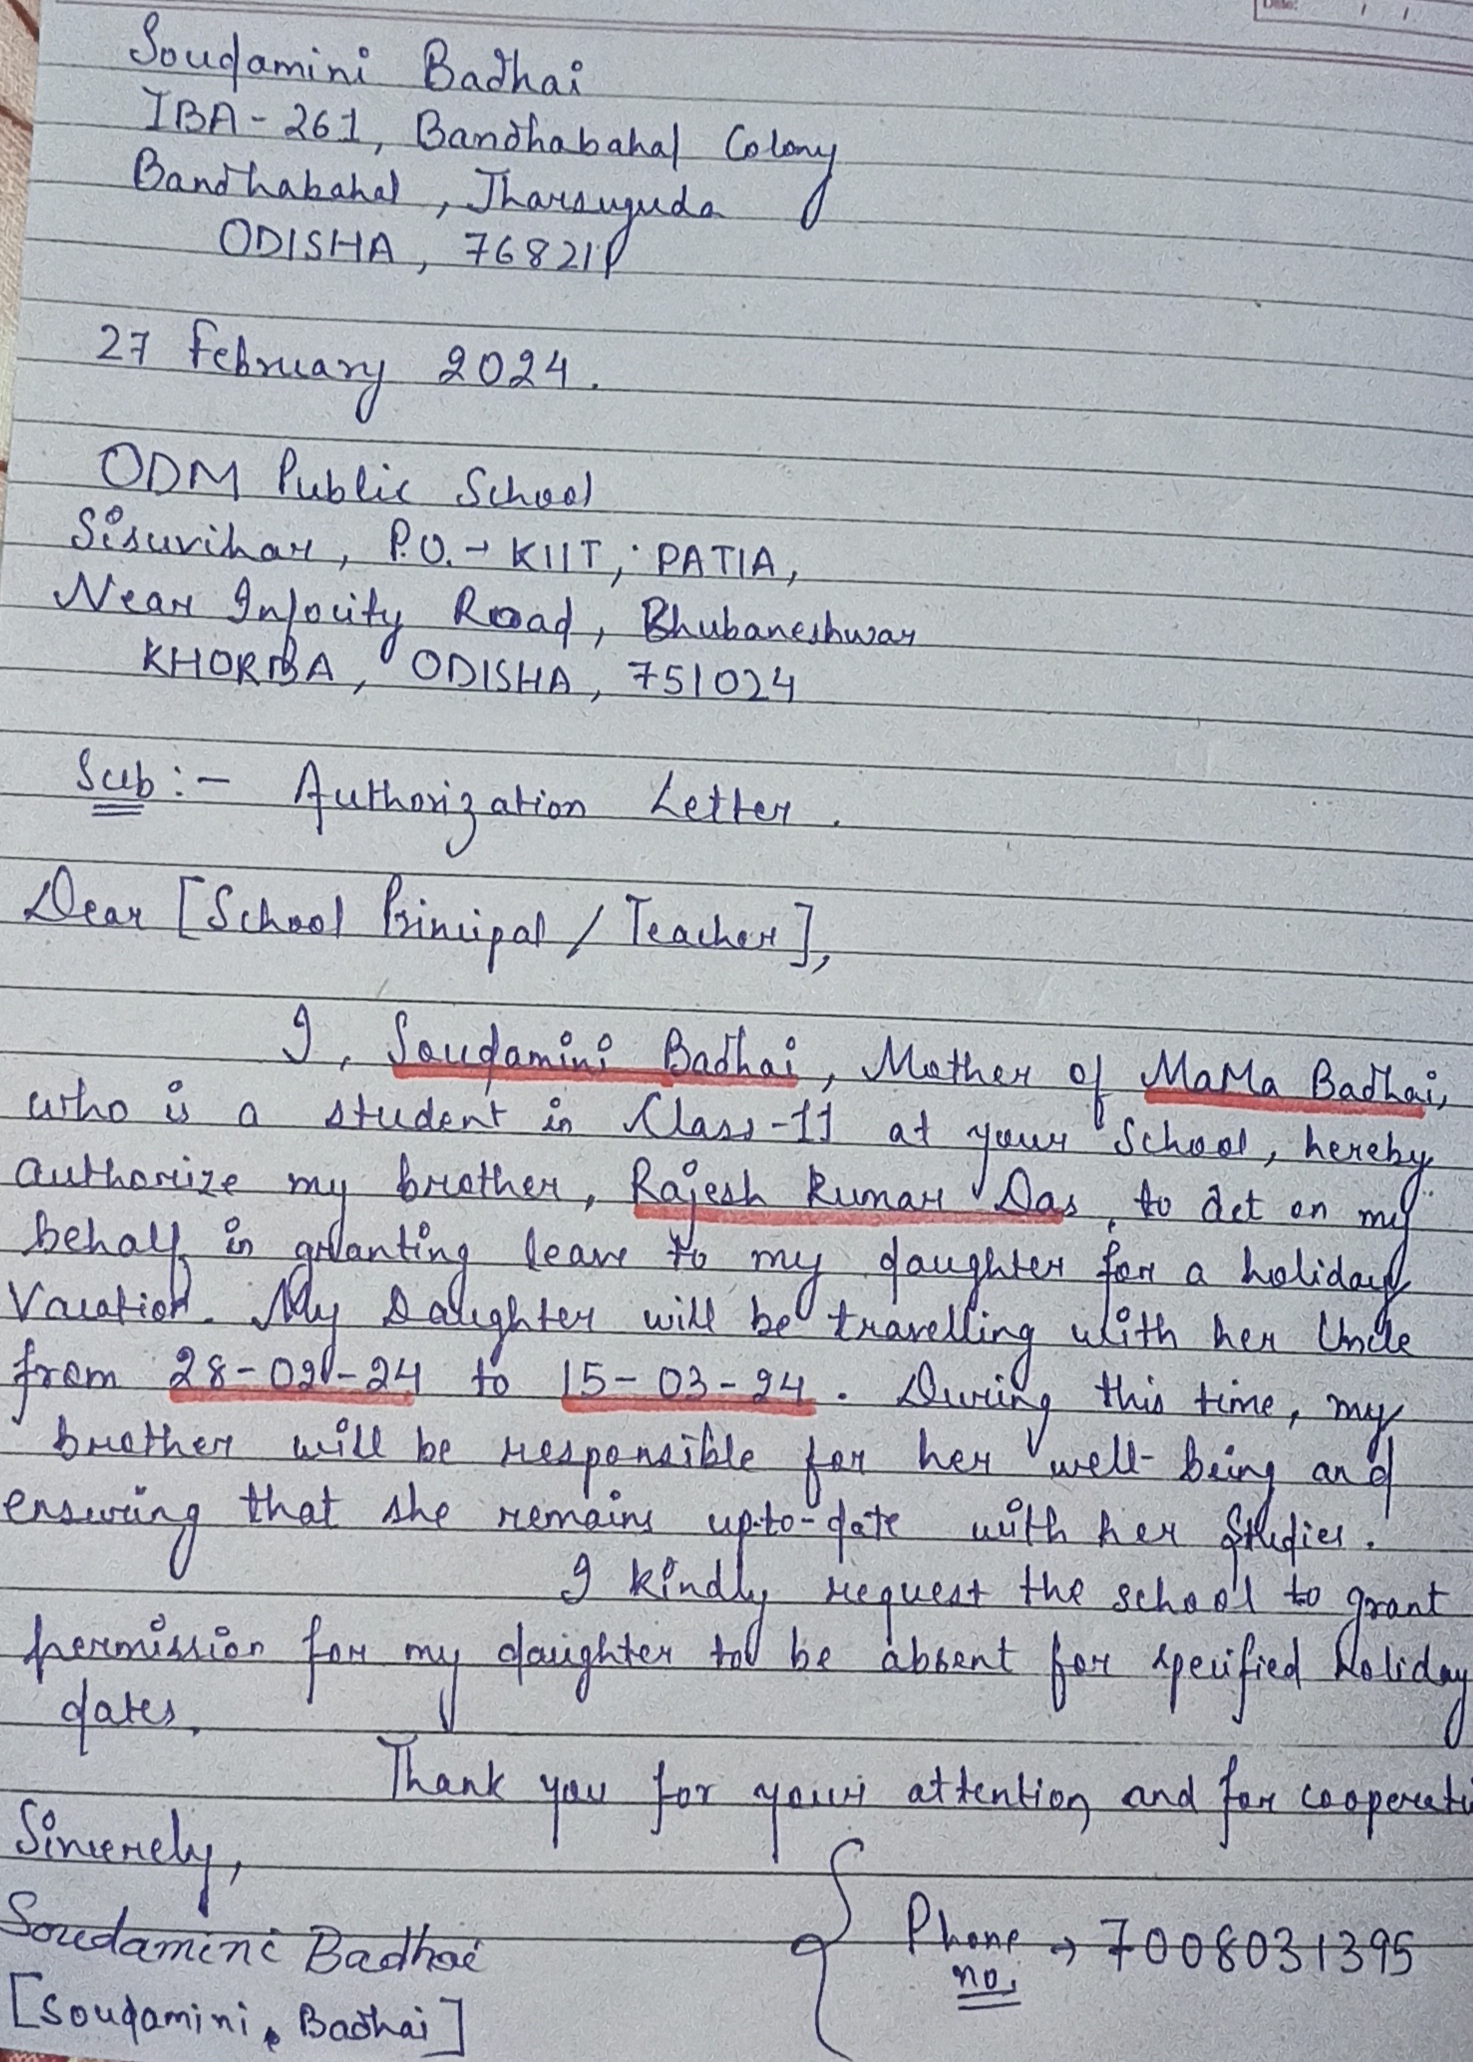 Date: / /
Soudamini Badhai
IBA-261, Bandhabahal Colony
Bandhabahal, Jharsuguda
ODISHA, 768211
27 February 2024.
ODM Public School
Sisuvihar, P.O. → KIIT, PATIA,
Near Infocity Road, Bhubaneshwar
KHORDA, ODISHA, 751024
Sub :- Authorization Letter.
Dear [School Principal / Teacher],
I, Soudamini Badhai, Mother of Badhai,
who is a student in Class-11 at your School, hereby
authorize my brother, Rajesh Kumar Das, to act on my
behalf in granting leave to my daughter for a holiday
Vacation. My Daughter will be travelling with her Uncle
from 28-02-24 to 15-03-24. During this time, my
brother will be responsible for her well-being and
ensuring that she remains up-to-date with her Studies.
I kindly request the school to grant
permission for my daughter to be absent for specified holiday
dates.
Thank you for your attention and for cooperati
Sincerely,
Soudamini Badhai
[Soudamini Badhai]
Phone no. → 7008031395